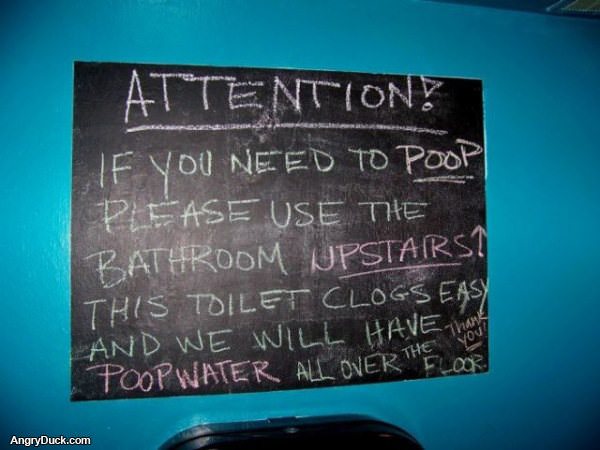 ATTENTION!
IF YOU NEED TO POOP
PLEASE USE THE
BATHROOM UPSTAIRS!↑
THIS TOILET CLOGS EASY
AND WE WILL HAVE
POOPWATER ALL OVER THE FLOOR
Thank
you!
AngryDuck.com